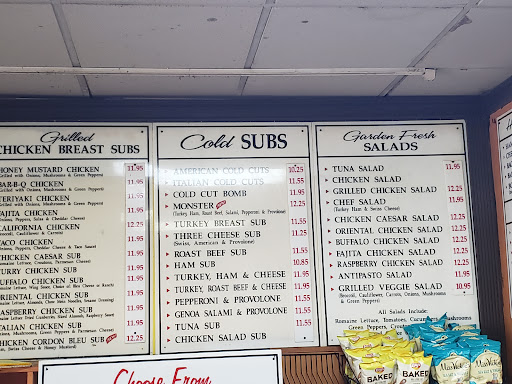 Grilled
CHICKEN BREAST SUBS
HONEY MUSTARD CHICKEN 11.95
Grilled with Onions, Mushrooms & Green Peppers
BAR-B-Q CHICKEN 11.95
Grilled with Onions, Mushrooms & Green Peppers
TERIYAKI CHICKEN 11.95
Grilled with Onions, Mushrooms & Green Peppers
FAJITA CHICKEN 11.95
Onions, Peppers, Salsa & Cheddar Cheese
CALIFORNIA CHICKEN 12.25
Broccoli, Cauliflower & Carrots
TACO CHICKEN 11.95
Onions, Peppers, Cheddar Cheese & Taco Sauce
CHICKEN CAESAR SUB 11.95
Romaine Lettuce, Croutons, Parmesan Cheese
CURRY CHICKEN SUB 11.95
BUFFALO CHICKEN SUB 11.95
ORIENTAL CHICKEN SUB 11.95
RASPBERRY CHICKEN SUB 11.95
ITALIAN CHICKEN SUB 11.95
Onions, Mushrooms, Green Peppers & Parmesan Cheese
CHICKEN CORDON BLEU SUB 12.25
Ham, Swiss Cheese & Honey Mustard
Cold SUBS
AMERICAN COLD CUTS 10.25
ITALIAN COLD CUTS 11.55
COLD CUT BOMB 11.95
MONSTER 12.25
(Turkey, Ham, Roast Beef, Salami, Pepperoni, & Provolone)
TURKEY BREAST SUB 11.55
THREE CHEESE SUB 11.25
(Swiss, American & Provolone)
ROAST BEEF SUB 11.55
HAM SUB 10.85
TURKEY, HAM & CHEESE 11.95
TURKEY, ROAST BEEF & CHEESE 11.95
PEPPERONI & PROVOLONE 11.55
GENOA SALAMI & PROVOLONE 11.55
TUNA SUB 11.55
CHICKEN SALAD SUB 11.55
Garden Fresh
SALADS
TUNA SALAD 11.95
CHICKEN SALAD 11.95
GRILLED CHICKEN SALAD 12.25
CHEF SALAD 11.95
(Turkey, Ham & Swiss Cheese)
CHICKEN CAESAR SALAD 12.25
ORIENTAL CHICKEN SALAD 12.25
BUFFALO CHICKEN SALAD 12.25
FAJITA CHICKEN SALAD 12.25
RASPBERRY CHICKEN SALAD 12.25
ANTIPASTO SALAD 11.95
GRILLED VEGGIE SALAD 10.95
(Broccoli, Cauliflower, Carrots, Onions, Mushrooms
& Green Peppers)
All Salads Include:
Romaine Lettuce, Tomatoes,
Green Peppers,
Choose From
BAKED
BAKED